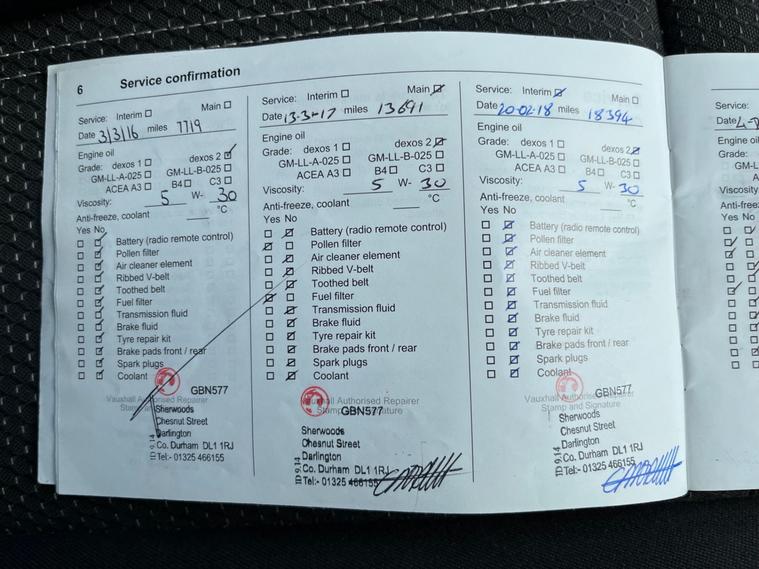 6 Service confirmation
Service: Interim ☐ Main ☐
Date 3/3/16 miles 7719
Engine oil
Grade: dexos 1 ☐ dexos 2 ☑
GM-LL-A-025 ☐ GM-LL-B-025 ☐
ACEA A3 ☐ B4 ☐ C3 ☐
Viscosity: 5 W- 30
Anti-freeze, coolant °C
Yes No
☐ ☑ Battery (radio remote control)
☐ ☑ Pollen filter
☐ ☑ Air cleaner element
☐ ☑ Ribbed V-belt
☐ ☑ Toothed belt
☐ ☑ Fuel filter
☐ ☑ Transmission fluid
☐ ☑ Brake fluid
☐ ☑ Tyre repair kit
☐ ☑ Brake pads front / rear
☐ ☑ Spark plugs
☐ ☑ Coolant
GBN577
Vauxhall Authorised Repairer
Stamp
Sherwoods
Chesnut Street
Darlington
Co. Durham DL1 1RJ
Tel:- 01325 466155
ID 9.14
Service: Interim ☐ Main ☑
Date 13-3-17 miles 13691
Engine oil
Grade: dexos 1 ☐ dexos 2 ☑
GM-LL-A-025 ☐ GM-LL-B-025 ☐
ACEA A3 ☐ B4 ☐ C3 ☐
Viscosity: 5 W- 30
Anti-freeze, coolant °C
Yes No
☐ ☑ Battery (radio remote control)
☑ ☐ Pollen filter
☐ ☑ Air cleaner element
☐ ☑ Ribbed V-belt
☐ ☑ Toothed belt
☑ ☐ Fuel filter
☐ ☑ Transmission fluid
☐ ☑ Brake fluid
☐ ☑ Tyre repair kit
☐ ☑ Brake pads front / rear
☐ ☑ Spark plugs
☐ ☑ Coolant
Vauxhall Authorised Repairer
Stamp and Signature
GBN577
Sherwoods
Chesnut Street
Darlington
Co. Durham DL1 1RJ
Tel:- 01325 466155
ID 9.14
Service: Interim ☑ Main ☐
Date 20-02-18 miles 18394
Engine oil
Grade: dexos 1 ☐ dexos 2 ☑
GM-LL-A-025 ☐ GM-LL-B-025 ☐
ACEA A3 ☐ B4 ☐ C3 ☐
Viscosity: 5 W- 30
Anti-freeze, coolant °C
Yes No
☐ ☑ Battery (radio remote control)
☐ ☑ Pollen filter
☐ ☑ Air cleaner element
☐ ☑ Ribbed V-belt
☐ ☑ Toothed belt
☐ ☑ Fuel filter
☐ ☑ Transmission fluid
☐ ☑ Brake fluid
☐ ☑ Tyre repair kit
☐ ☑ Brake pads front / rear
☐ ☑ Spark plugs
☐ ☑ Coolant
GBN577
Vauxhall Authorised Repairer
Stamp and Signature
Sherwoods
Chesnut Street
Darlington
Co. Durham DL1 1RJ
Tel:- 01325 466155
ID 9.14
Service:
Date
Engine
Grade:
Viscosity
Anti-free
Yes No